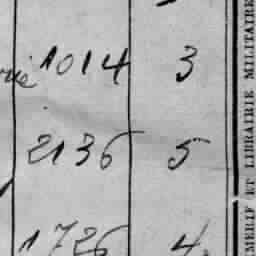 1014 3
2136 5
1726 4
MERIE ET LIBRAIRIE MILITAIRE